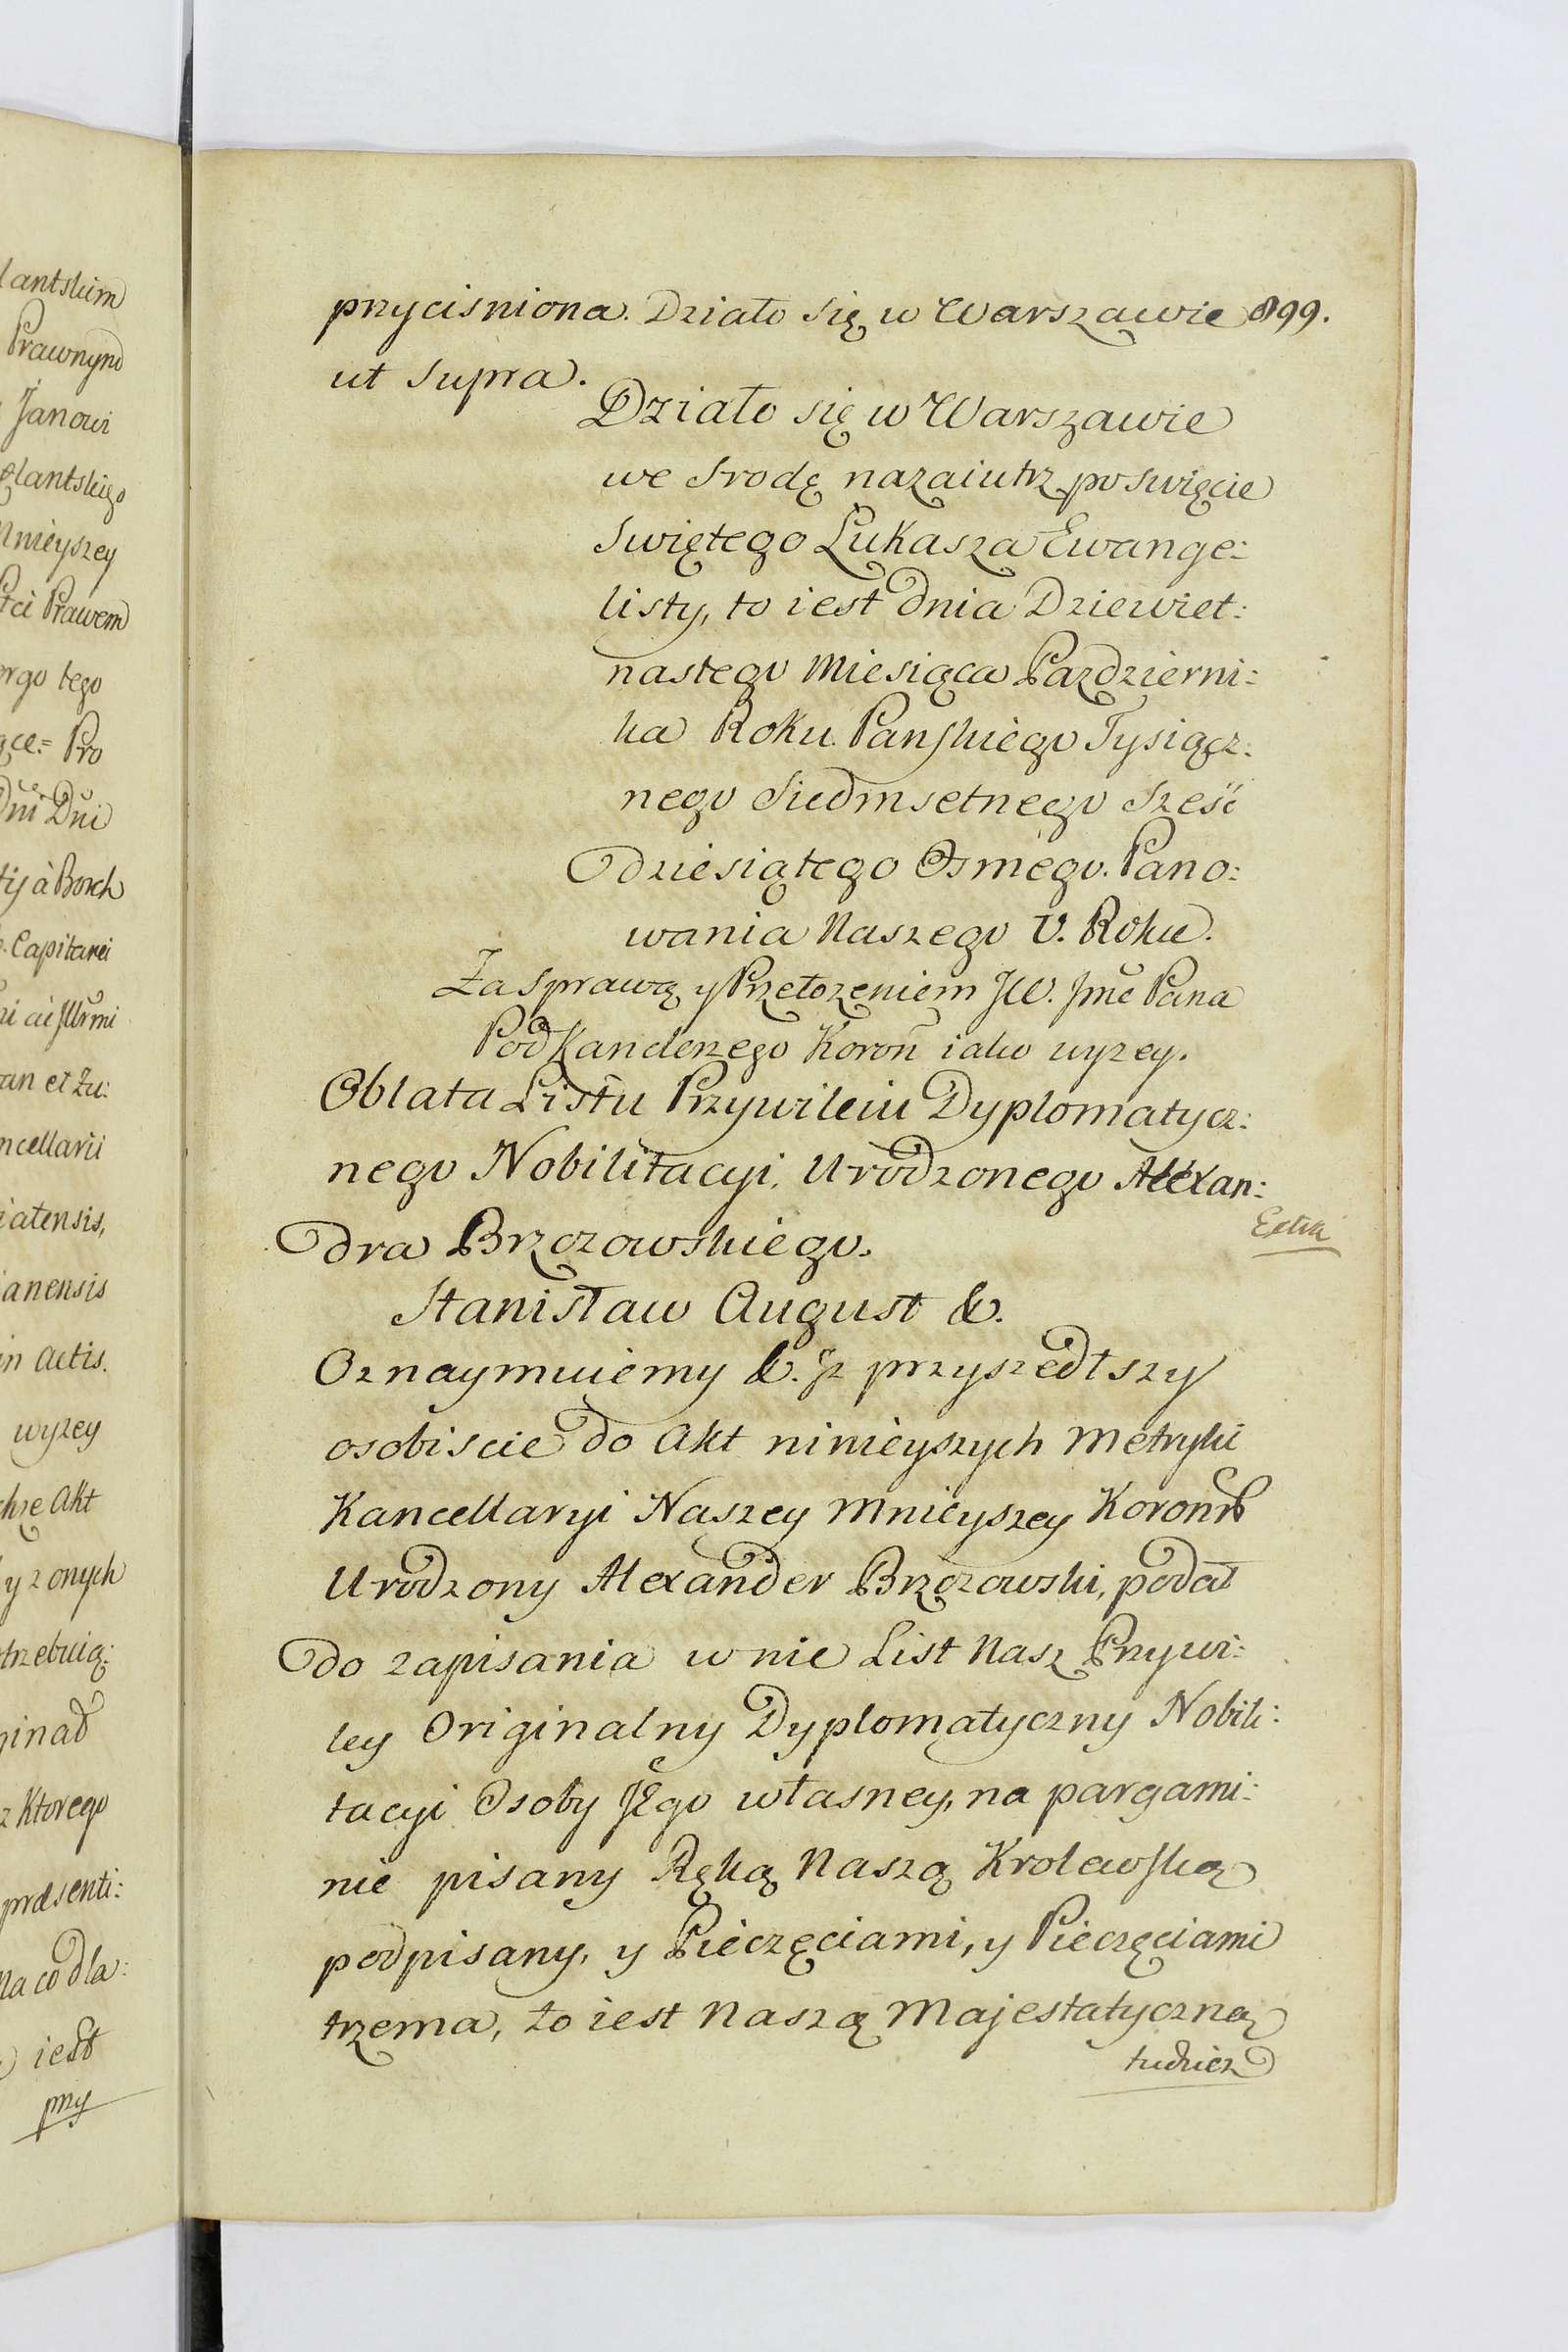 lantskim
Prawnym
Janowi
lantskiego
Mnieyszey
Prawem
tego
Pro
Dni Dni
à Borch
Capitanei
an et Zu:
ncellarii
iatensis,
ianensis
in Actis.
wyzey
Akt
y z onych
trzebuią:
ginał
z Ktorego
præsenti:
na co dla:
iest
przy
przycisniona. Działo się w Warszawie 899.
ut supra.
Działo się w Warszawie
we Srodę nazaiutrz po swięcie
Swiętego Łukasza Ewange:
listy, to iest dnia Dziewiet:
nastego Miesiąca Pazdzierni:
ka Roku Panskiego Tysiącz:
nego Siedmsetnego Sześć
dziesiątego Osmego. Pano:
wania Naszego V. Roku.
Za Sprawą y Przełozeniem JW. Jmć Pana
Podkanclerzego Koroñ iako wyzey.
Oblata Listu Przywileiu Dyplomatycz:
nego Nobilitacyi, Urodzonego Alexan:
Extra
dra Brzozowskiego.
Stanisław August &.
Oznaymuiemy &. Jz przyszedłszy
osobiscie do Akt ninieyszych Metryki
Kancellaryi Naszey Mnieyszey Koronñ
Urodzony Alexander Brzozowski, podał
do zapisania w nie List Nasz Przywi:
ley Originalny Dyplomatyczny Nobili:
tacyi Osoby Jego własney, na pargami:
nie pisany Ręką Naszą Krolewską
podpisany, y Pieczęciami, y Pieczęciami
trzema, to iest Naszą Majestatyczną
tudziesz